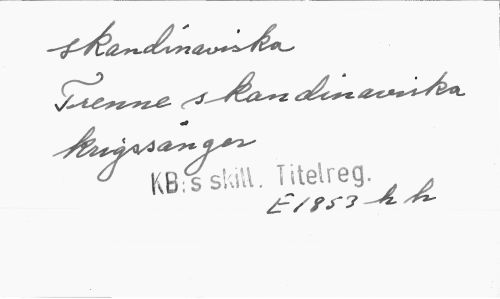 skandinaviska
Trenne skandinaviska
krigssånger
KB:s skill. Titelreg.
E 1853 h h